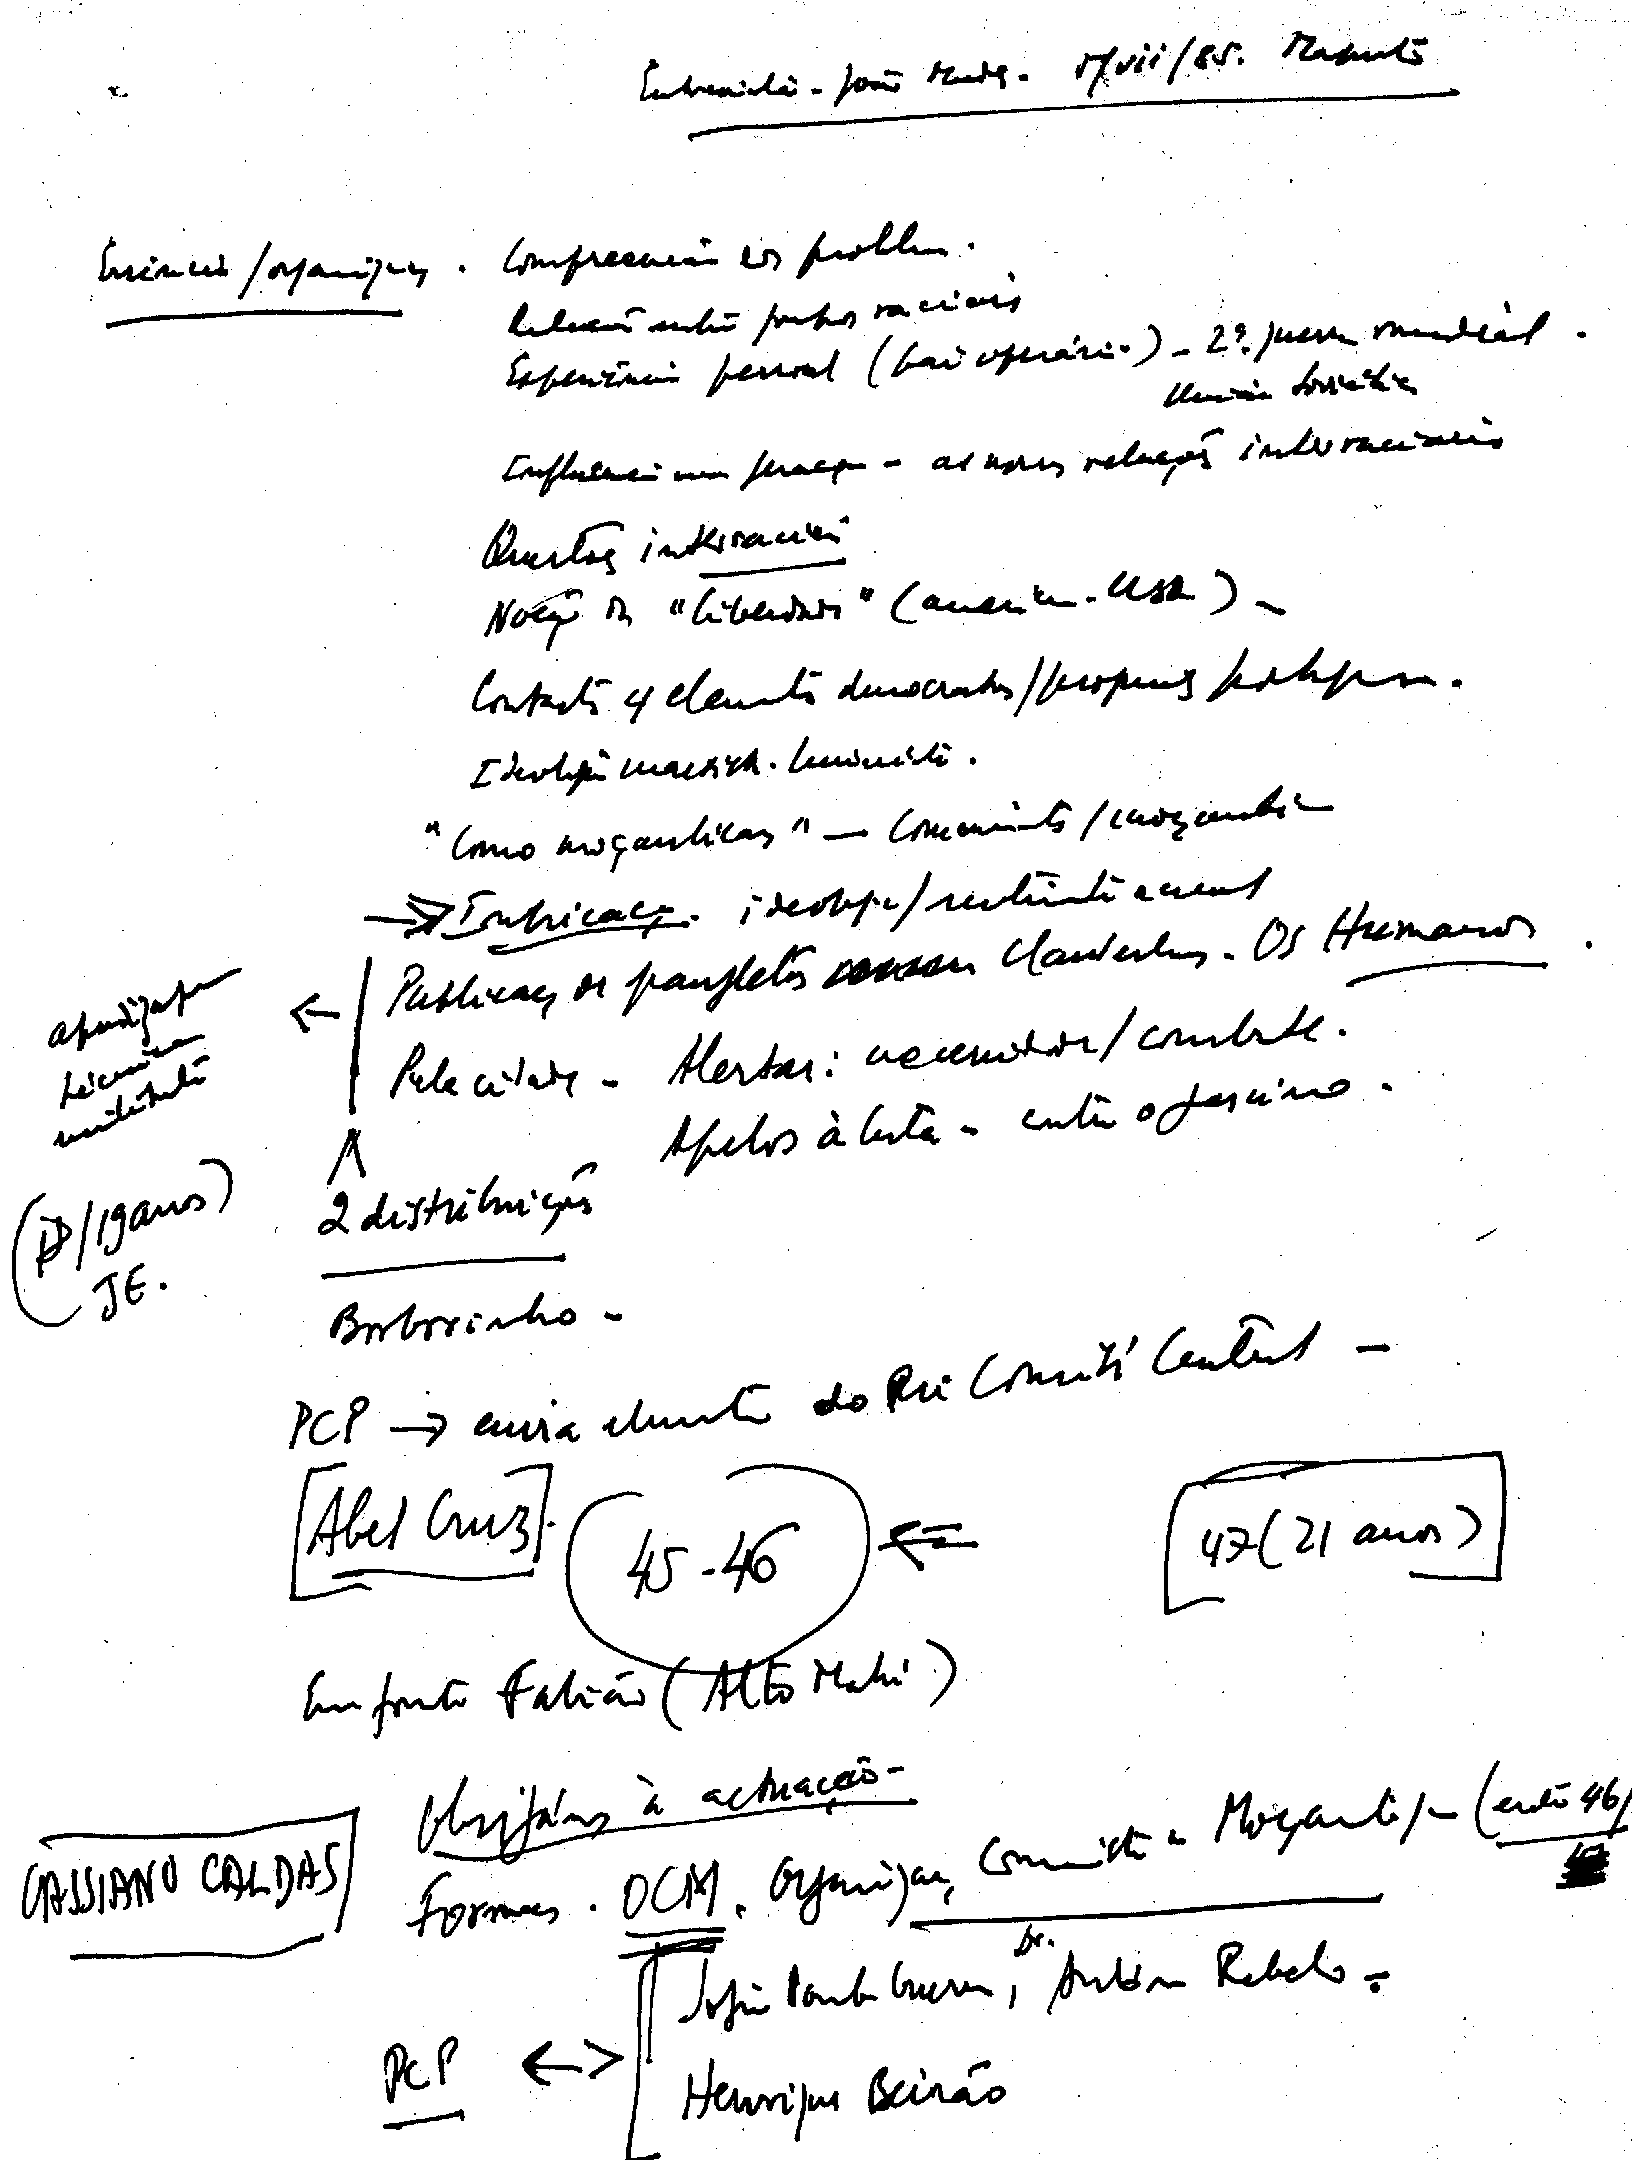 Entrevista - João Mendes - 17/vii/85. Maputo
Essência / organizações . Compreensão dos problemas.
Relação entre grupos raciais
Experiência pessoal (pai operário) - 2ª. guerra mundial.
União Soviética
Influência numa geração - as novas relações interraciais
Questões interraciais
Noção de "liberdade" (america - USA) -
Contacto c/ elementos democratas / portuguesa.
Ideologia marxista-leninista.
"Como moçambicanos" - Comunista / moçambi
→ Imbricação. ideologia / sentimento nacional
Publicações de panfletos clandestinos. Os Humanos.
← aprendizagem
técnica
militante
Pela cidade - Alertar: necessidade / combate.
Apelos à luta - contra o fascismo.
2 distribuições
( /19 anos)
JE.
Borborinho -
PCP → envia elemento do seu Comité Central -
[Abel Cruz]. 45-46 ⇐ 47 (21 anos)
Em frente Fabião (Alto Mahé)
Obrigá-los à actuação -
CASSIANO CALDAS
Formação . OCM. Organização Comunista de Moçambique (entre 46/
Sofia Pomba Guerra, Dr. António Rebelo -
PCP <-> Henrique Beirão